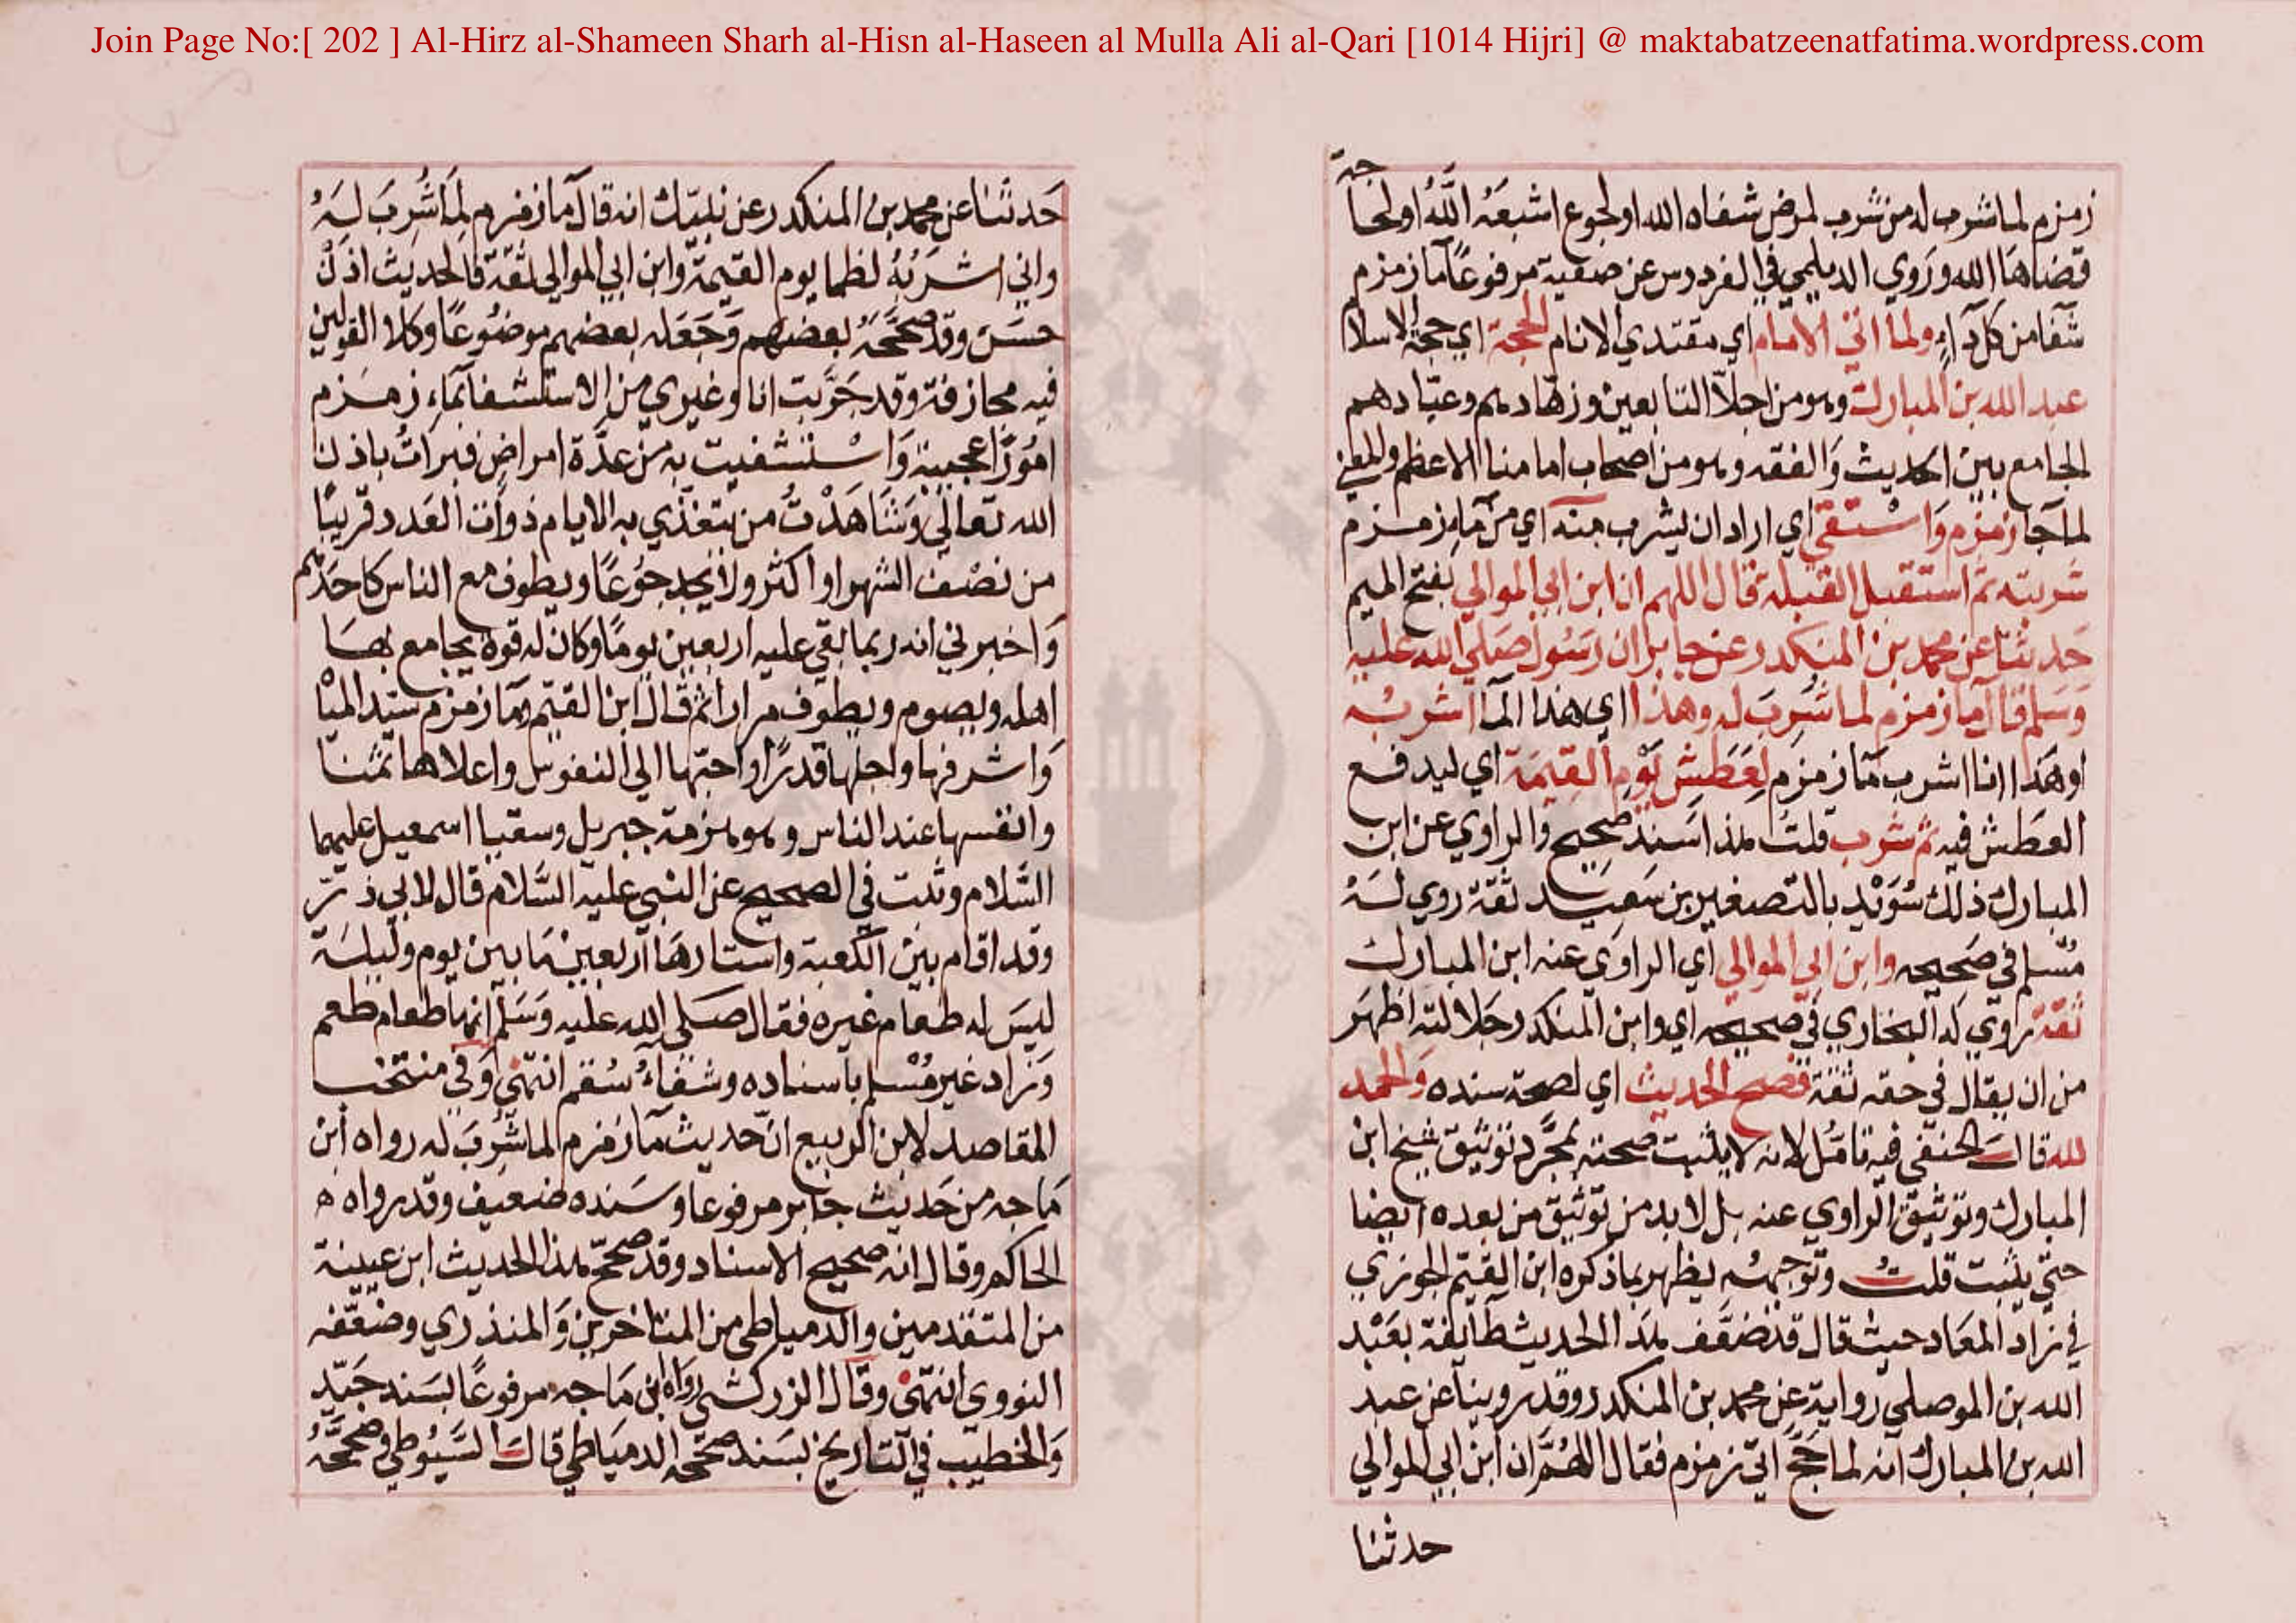 Join Page No:[ 202 ] Al-Hirz al-Shameen Sharh al-Hisn al-Haseen al Mulla Ali al-Qari [1014 Hijri] @ maktabatzeenatfatima.wordpress.com
زمزم لما شرب له من شرب لمرض شفاه الله او لجوع اشبعَهُ اللَّهُ او لحاجة
قضاهَا الله ورَوي الديلمي في الفردوس عن صفية مرفوعًا مآ زمزم
شفا من كل دآءٍ ولما اتي الامام اي مقتدي الانام الحجة اي حجة الاسلا
عبد الله بن المبارك وهو من اجلاّ التابعين وزهّادهم وعبّادهم
الجامع بين الحديث وَالفقه وهو من اصحاب امامنا الاعظم والمعني
لما جا زمزم وَاسْتقي اي اراد ان يشرب منه اي من مآءِ زمزم
شربته ثم استقبل القبلة قال اللهم ان ابن ابي الموالي بفتح الميم
حَدثنا عن محمد بن المنكدر عن جابر ان رَسُول صَلي الله عليه
وَسَلم قال مآ زمزم لما شُرِبَ له وهذا اي هذا المآ اشربُه
او هَذا انا اشرب مآ زمزم لِعَطَشِ يَوْمِ القِيمَة اي ليدفع
العطَش فيه ثم شرب قلتُ هذا سَند صَحِيح وَالراوي عن ابن
المبارك ذلك سُوَيْد بالتصغير بن سَعِيد ثقة روي لَهُ
مُسْلم في صَحيحه وابن ابي الموالي اي الراوي عنه ابن المبارك
ثقة روي له البخاري في صحيحه اي وابن المنكدر جَلالته اظهَر
من ان يقال في حقه ثقة فصح الحديث اي لصحة سنده وَالحمد
لله قال الحنفي فيه تامُل لانه لا يثبت صحته بمجرّد توثيق شيخ ابن
المبارك وتوثيق الراوي عنه بل لا بد من توثيق من بعده ايضا
حتي يثبت قلتُ وتوجيهُه يظهر بما ذكره ابن القيّم الجوزي
في زاد المعَاد حيث قال قد ضعّف هذَا الحديث طايفة بعَبْد
الله بن الموصلي رواية عن محمد بن المنكدر وقد روينا عن عبد
الله بن المبارك انه لما حَجَّ اتي زمزم فقال اللهُمَّ ان ابن ابي الموالي
حدثنا
حَدثنا عن محمد بن المنكدر عن نبيّك انه قال مآ زمزم لِمَا شُرِبَ لَهُ
واني اشرَبُهُ لظما يوم القيمة وابن ابي الموالي ثقة فالحديث اذنْ
حسَن وقد صحّحَهُ بعضهم وَجَعَله بعضهم موضُوعًا وكلا القولين
فيه مجازفة وقد جَرَّبت انا وغيري من الاستشفا بمآءِ زمزم
امُورًا عجيبة وَاستشفيت به من عدَّة امراض فبراتُ باذن
الله تعالي وَشَاهَدْتُ من يتغذّي به الايام ذوات العَدد قريبًا
من نصْف الشهر او اكثر ولا يجد جُوعًا ويطوف مع الناس كاحَدهم
وَاخبرني انه ربما بقي عليه اربعين يومًا وكان له قوة يجامع بهَا
اهله ويصوم ويطوف مرارا ثم قال ابن القيّم ومآ زمزم سيّد الميَا
وَاشرفها واجلها قدرًا واحبّها الي النفوس واعلاها ثمنا
وانفسها عند الناس وهو هزمة جبريل وسقيا اسمعيل عليهما
السَّلام وثبت في الصحيح عن النبي عليه السَّلام قال لابي ذرّ
وقد اقام بين الكعبة واستارهَا اربعين مَا بين يوم وليلة
ليسَ له طعَام غيره فقال صَلي الله عليه وَسَلم انها طعام طعم
وَزاد غير مُسْلم باسناده وشفاءُ سُقم انتهي وَفي منتخب
المقاصد لابن الربيع انّ حديث مآ زمزم لما شُرِبَ له رواه ابن
مَاجه من حَديث جَابر مرفوعا وسَنده ضعيف وقد رواه ه
الحاكم وقال انه صحيح الاسناد وقد صحّح هذا الحديث ابن عيينة
من المتقدمين والدمياطي من المتاخرين وَالمنذري وضعّفه
النووي انتهي وقال الزركشي رواه ابن مَاجه مرفوعًا بسَند جَيّد
وَالخطيب في التاريخ بسَند صحّحه الدميَاطي قال السّيُوطي وصَحّحَهُ